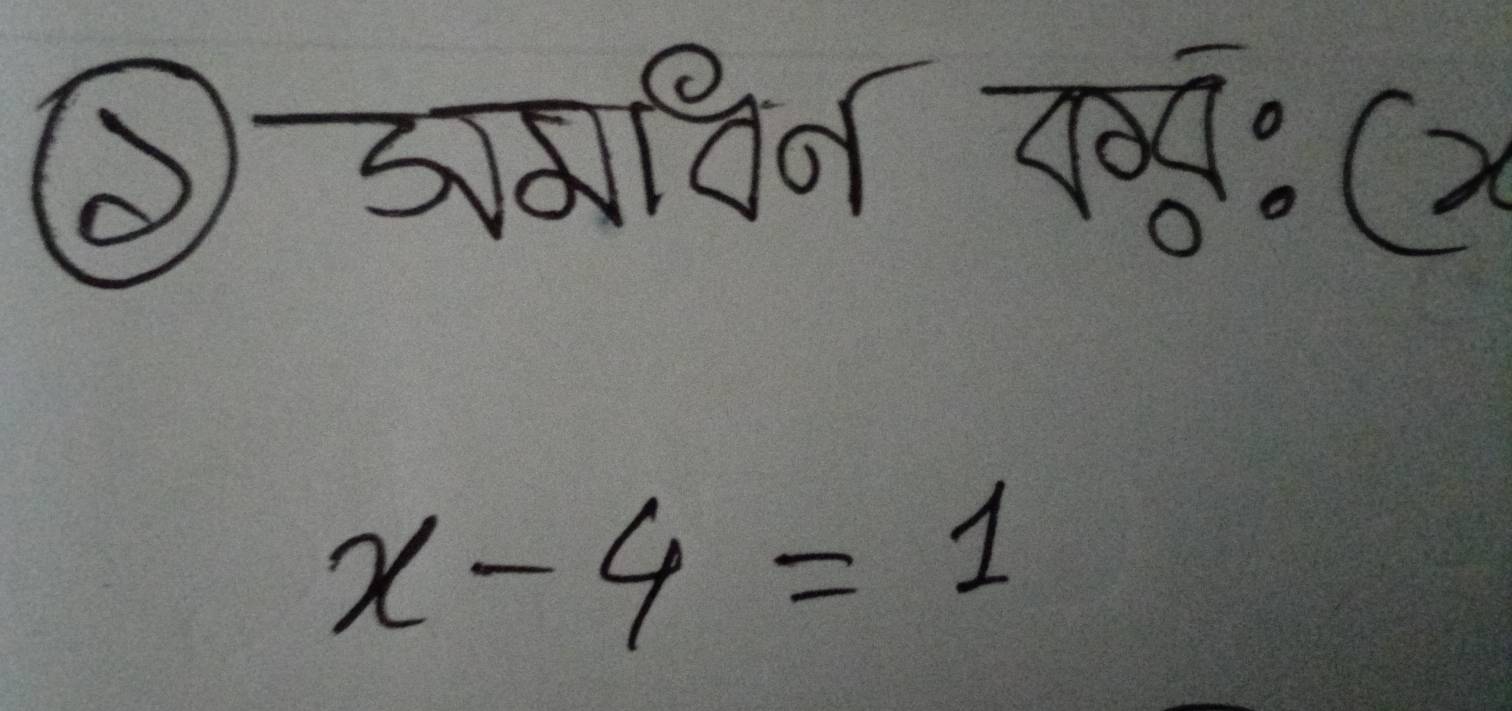 ১ সমাধন কর: (x
x - 4 = 1